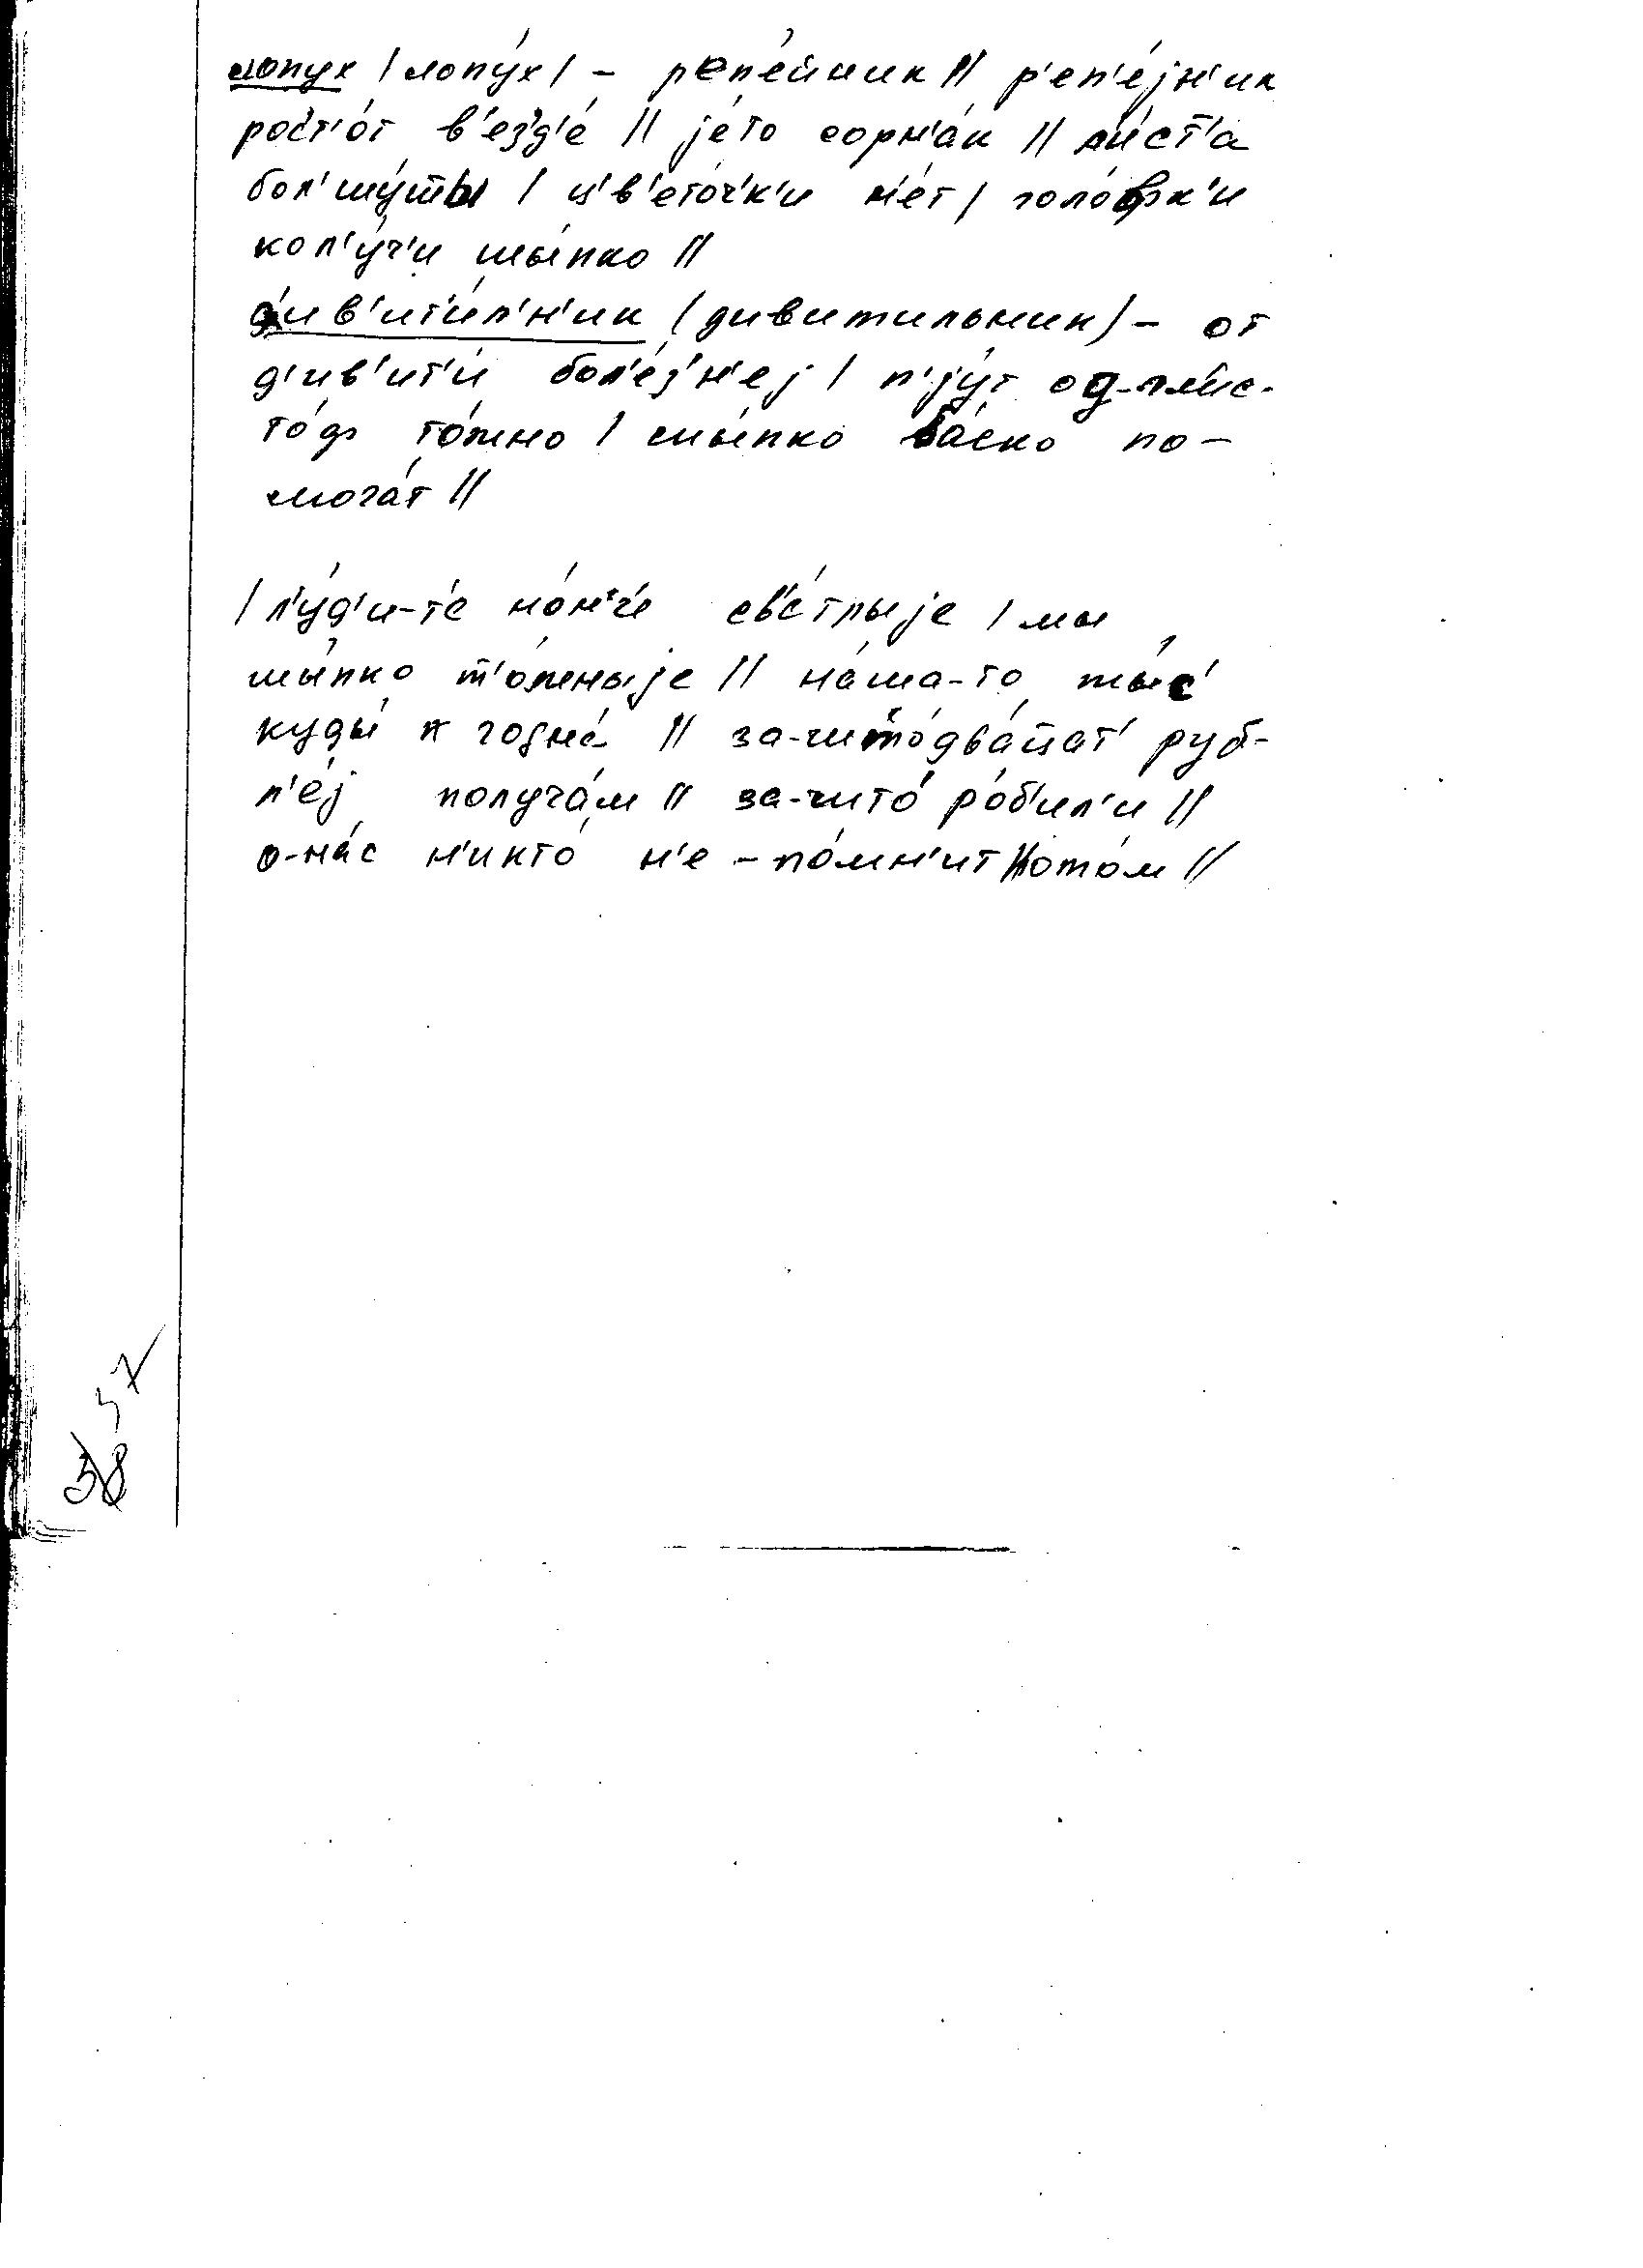 лопух /лопу́х/ – репе́йник // р'еп'е́jн'ик
рос'т'о́т в'ез'д'е́ // jе́то сорн'а́к // л'и́ст'а
бол'шу́шшы / ц'в'ето́ч'к'и н'е́т / голо́фк'и
кол'у́ч'и шы́пко //
д'ив'ит'и́л'н'ик (дивитильник) – от
д'ив'ит'и́ бол'е́з'н'еj / п'jу́т
то́жно / шы́пко ба́ско по–
мога́т //
/ л'у́д'и-т'е но́н'ч'и / мы
шы́пко т'о́мныjе // на́ша-то жы́с'
куды́ к годна́ // за-чито́ два́цат' руб-
л'е́j получа́м // за-чито́ ро́б'ил'и //
о-на́с н'икто́ н'е – по́мн'ит
57
58